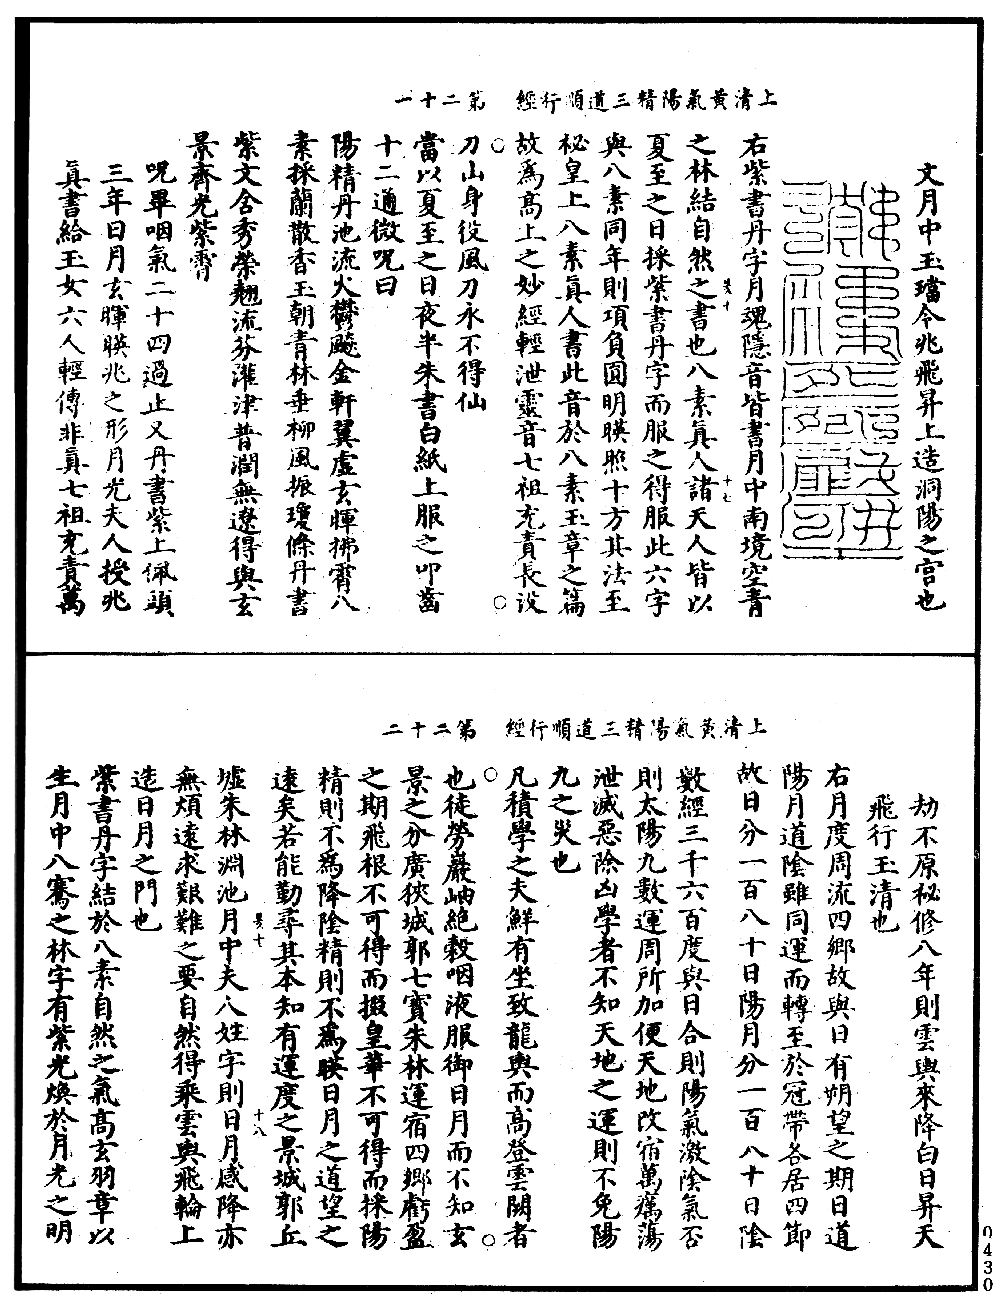 上清黃氣陽精三道順行經　第二十一
文月中玉璫令兆飛昇上造洞陽之宮也
右紫書丹字月魂隱音皆書月中南境空青
之林結自然之書也八素真人諸天人皆以
夏至之日採紫書丹字而服之得服此六字
與八素同年則項負圓明暎照十方其法至
祕皇上八素真人書此音於八素玉章之篇
故爲高上之妙經輕泄靈音七祖充責長沒
刀山身役風刀永不得仙
當以夏至之日夜半朱書白紙上服之叩齒
十二通微呪曰
陽精丹池流火鬱飈金軒翼虛玄暉拂霄八
素採蘭散香玉朝青林垂柳風振瓊條丹書
紫文含秀榮翹流芬灌津普潤無遼得與玄
景齊光紫霄
呪畢咽氣二十四過止又丹書紫上佩頭
三年日月玄暉暎兆之形月光夫人授兆
真書給玉女六人輕傳非真七祖充責萬
上清黃氣陽精三道順行經　第二十二
劫不原祕修八年則雲輿來降白日昇天
飛行玉清也
右月度周流四鄉故與日有朔望之期日道
陽月道陰雖同運而轉至於冠帶各居四節
故日分一百八十日陽月分一百八十日陰
數經三千六百度與日合則陽氣激陰氣否
則太陽九數運周所加便天地改宿萬癘蕩
泄滅惡除凶學者不知天地之運則不免陽
九之災也
凡積學之夫鮮有坐致龍輿而高登雲闕者
也徒勞巖岫絕穀咽液服御日月而不知玄
景之分廣狹城郭七寶朱林運宿四鄉虧盈
之期飛根不可得而掇皇華不可得而採陽
精則不爲降陰精則不爲暎日月之道望之
遠矣若能勤尋其本知有運度之景城郭丘
墟朱林淵池月中夫人姓字則日月感降亦
無煩遠求艱難之要自然得乘雲輿飛輪上
造日月之門也
紫書丹字結於八素自然之氣高玄羽章以
生月中八騫之林字有紫光煥於月光之明
0430